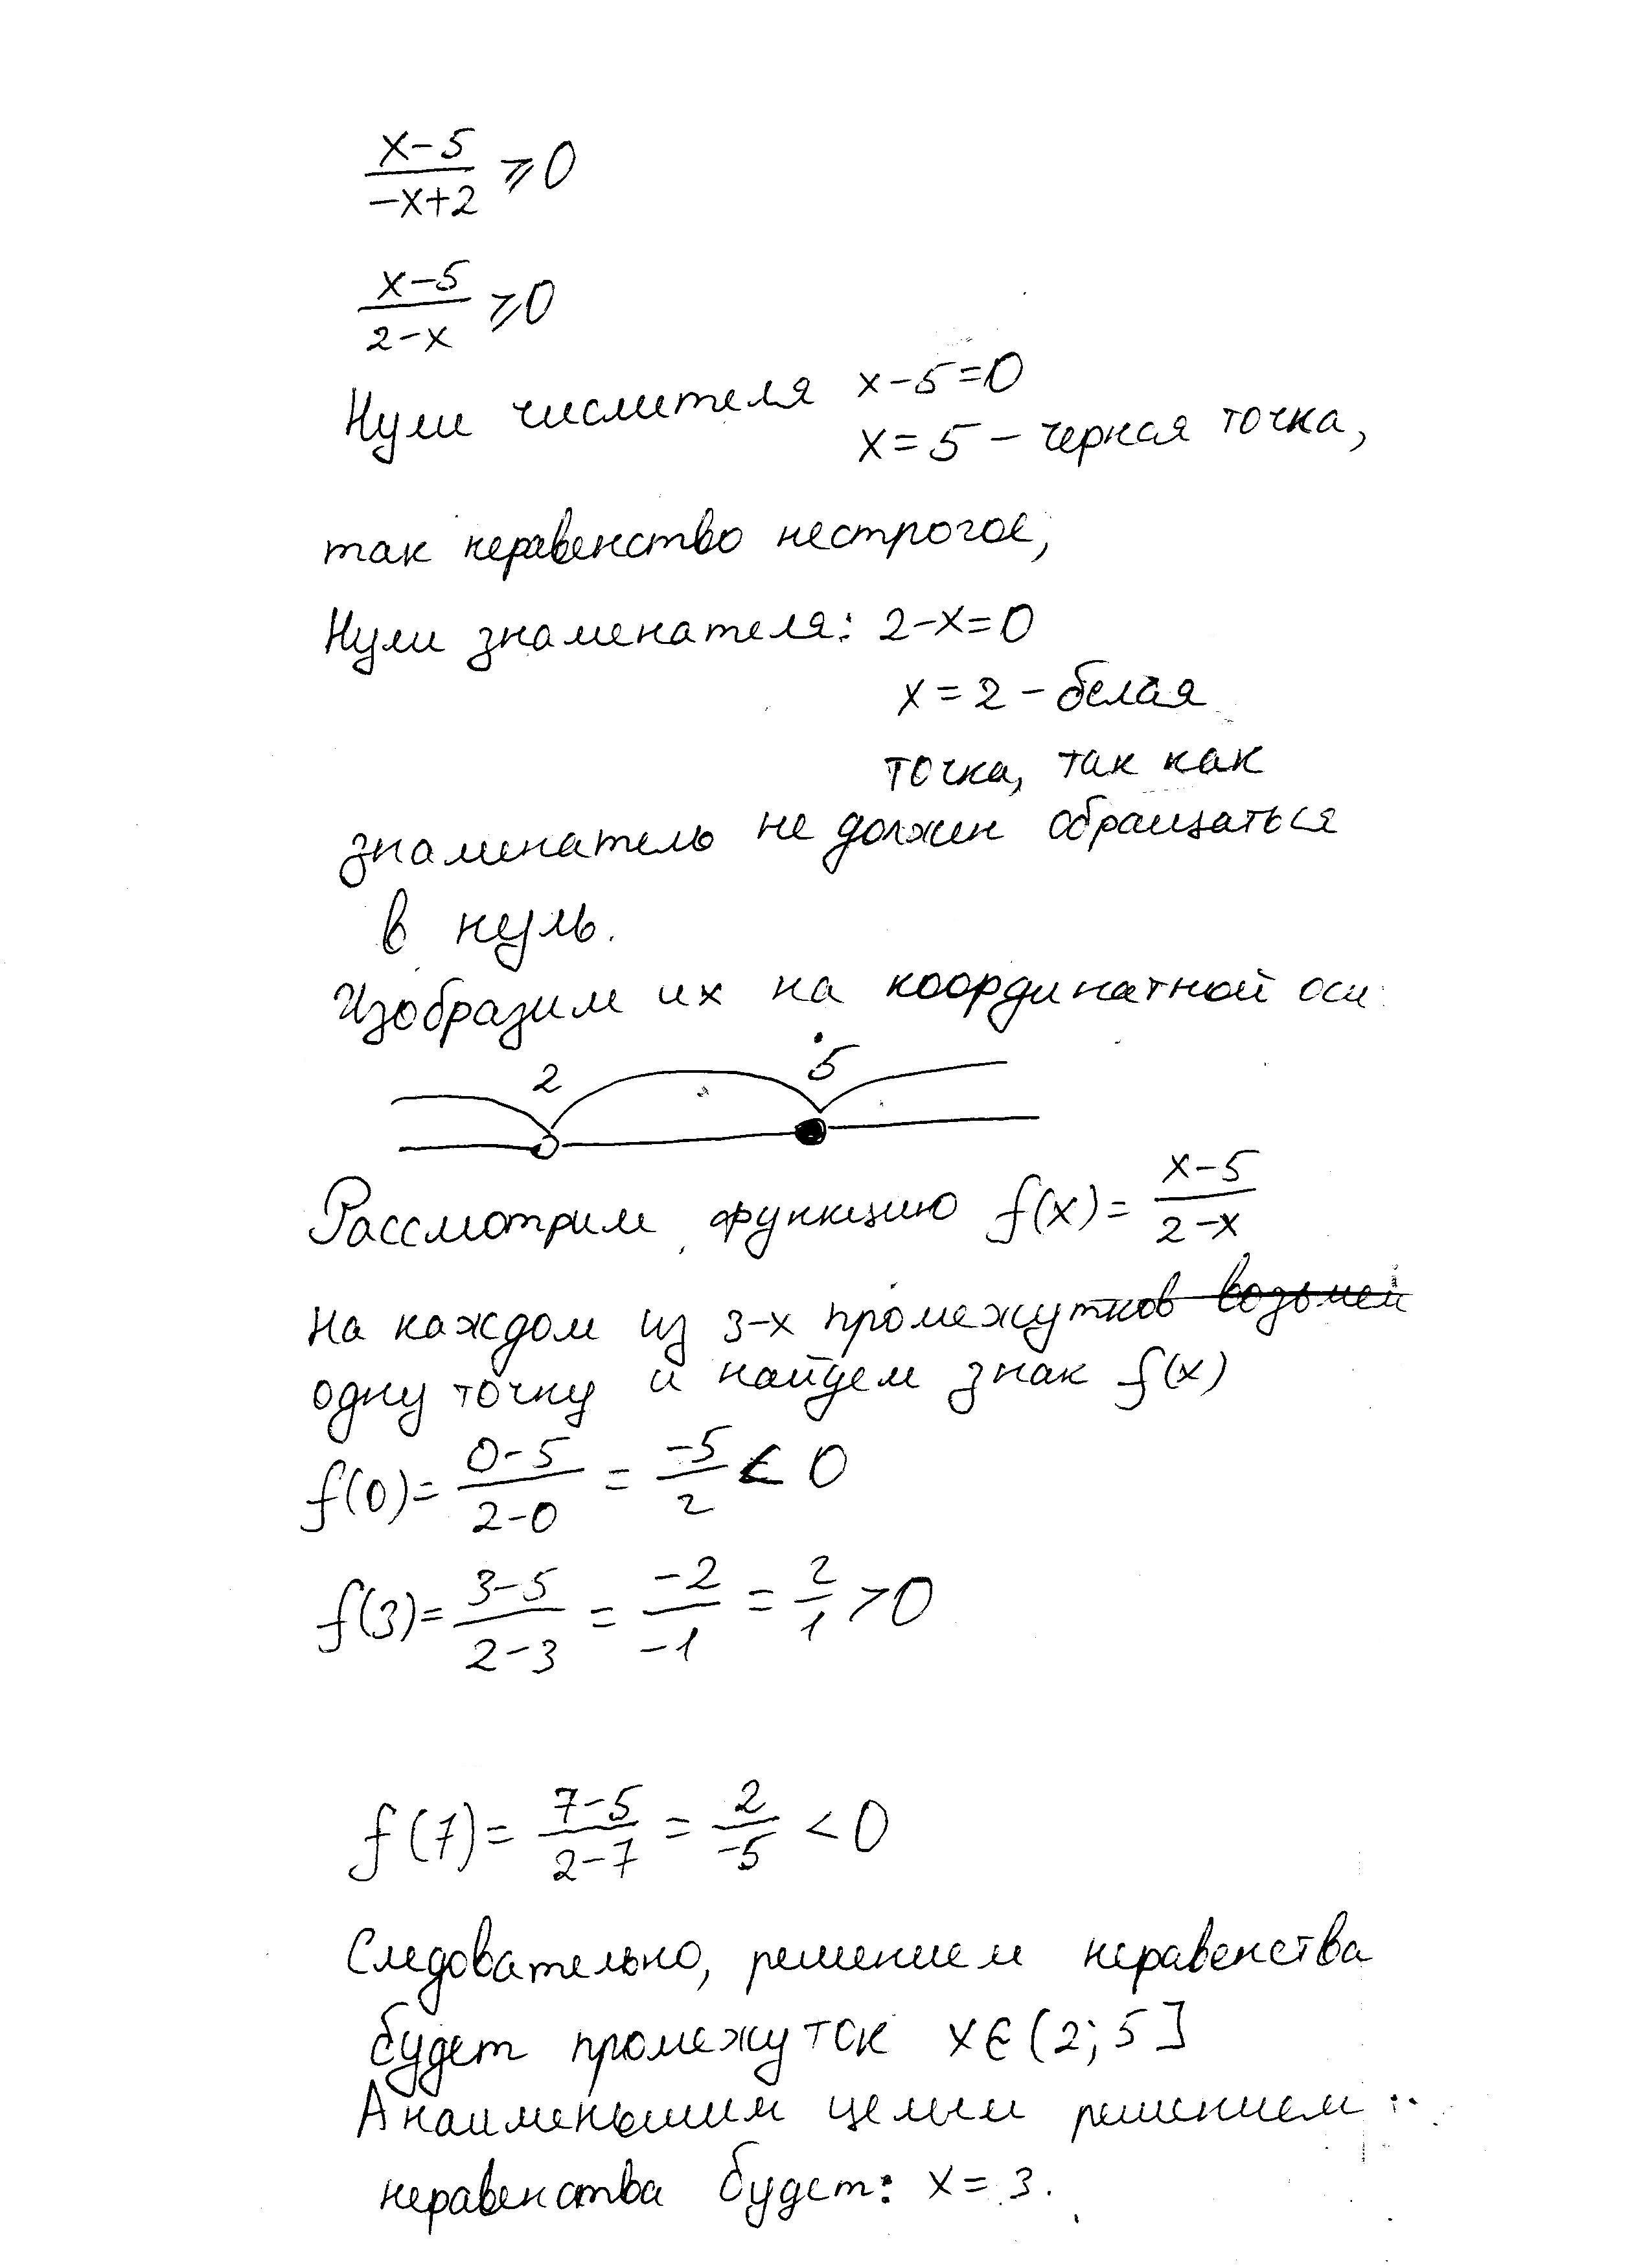 x-5/-x+2 ⩾ 0
x-5/2-x ⩾ 0
Нули числителя x-5=0
x=5 - черная точка,
так неравенство нестрогое,
Нули знаменателя: 2-x=0
x=2 - белая
точка, так как
знаменатель не должен обращаться
в нуль.
Изобразим их на координатной оси:
2 5
Рассмотрим функцию f(x)= x-5/2-x
На каждом из 3-х промежутков возьмем
одну точку и найдем знак f(x)
f(0)= 0-5/2-0 = -5/2 < 0
f(3)= 3-5/2-3 = -2/-1 = 2/1 > 0
f(7)= 7-5/2-7 = 2/-5 < 0
Следовательно, решением неравенства
будет промежуток x∈(2;5]
А наименьшим целым решением
неравенства будет: x=3.